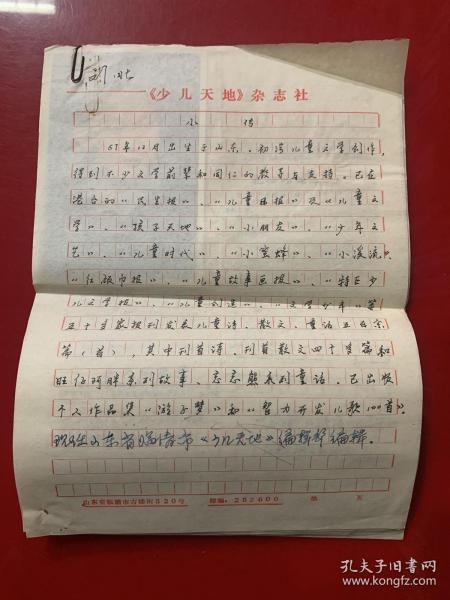 湖北
《少儿天地》杂志社
小传
67年12月出生于山东。初涉儿童文学创作,
得到不少文学前辈和同仁的教导与支持。已在
港台的"民生报"、"儿童日报"及"儿童文
学"、"孩子天地"、"小朋友"、"少年文
艺"、"儿童时代"、"小蜜蜂"、"小溪流"、
"红领巾报"、"儿童故事画报"、"特区少
儿文学报"、"儿童创造"、"文学少年"等
五十多家报刊发表儿童诗、散文、童话五百余
篇(首),其中刊首诗、刊首散文四十多篇和
旺仔阿胖系列故事、忘忘熊系列童话。已出版
个人作品集"游子梦"和"智力开发儿歌100首"。
现在山东省临清市《少儿天地》编辑部编辑。
山东省临清市古楼街520号 邮编:252600 第 页
孔夫子旧书网
www.kongfz.com